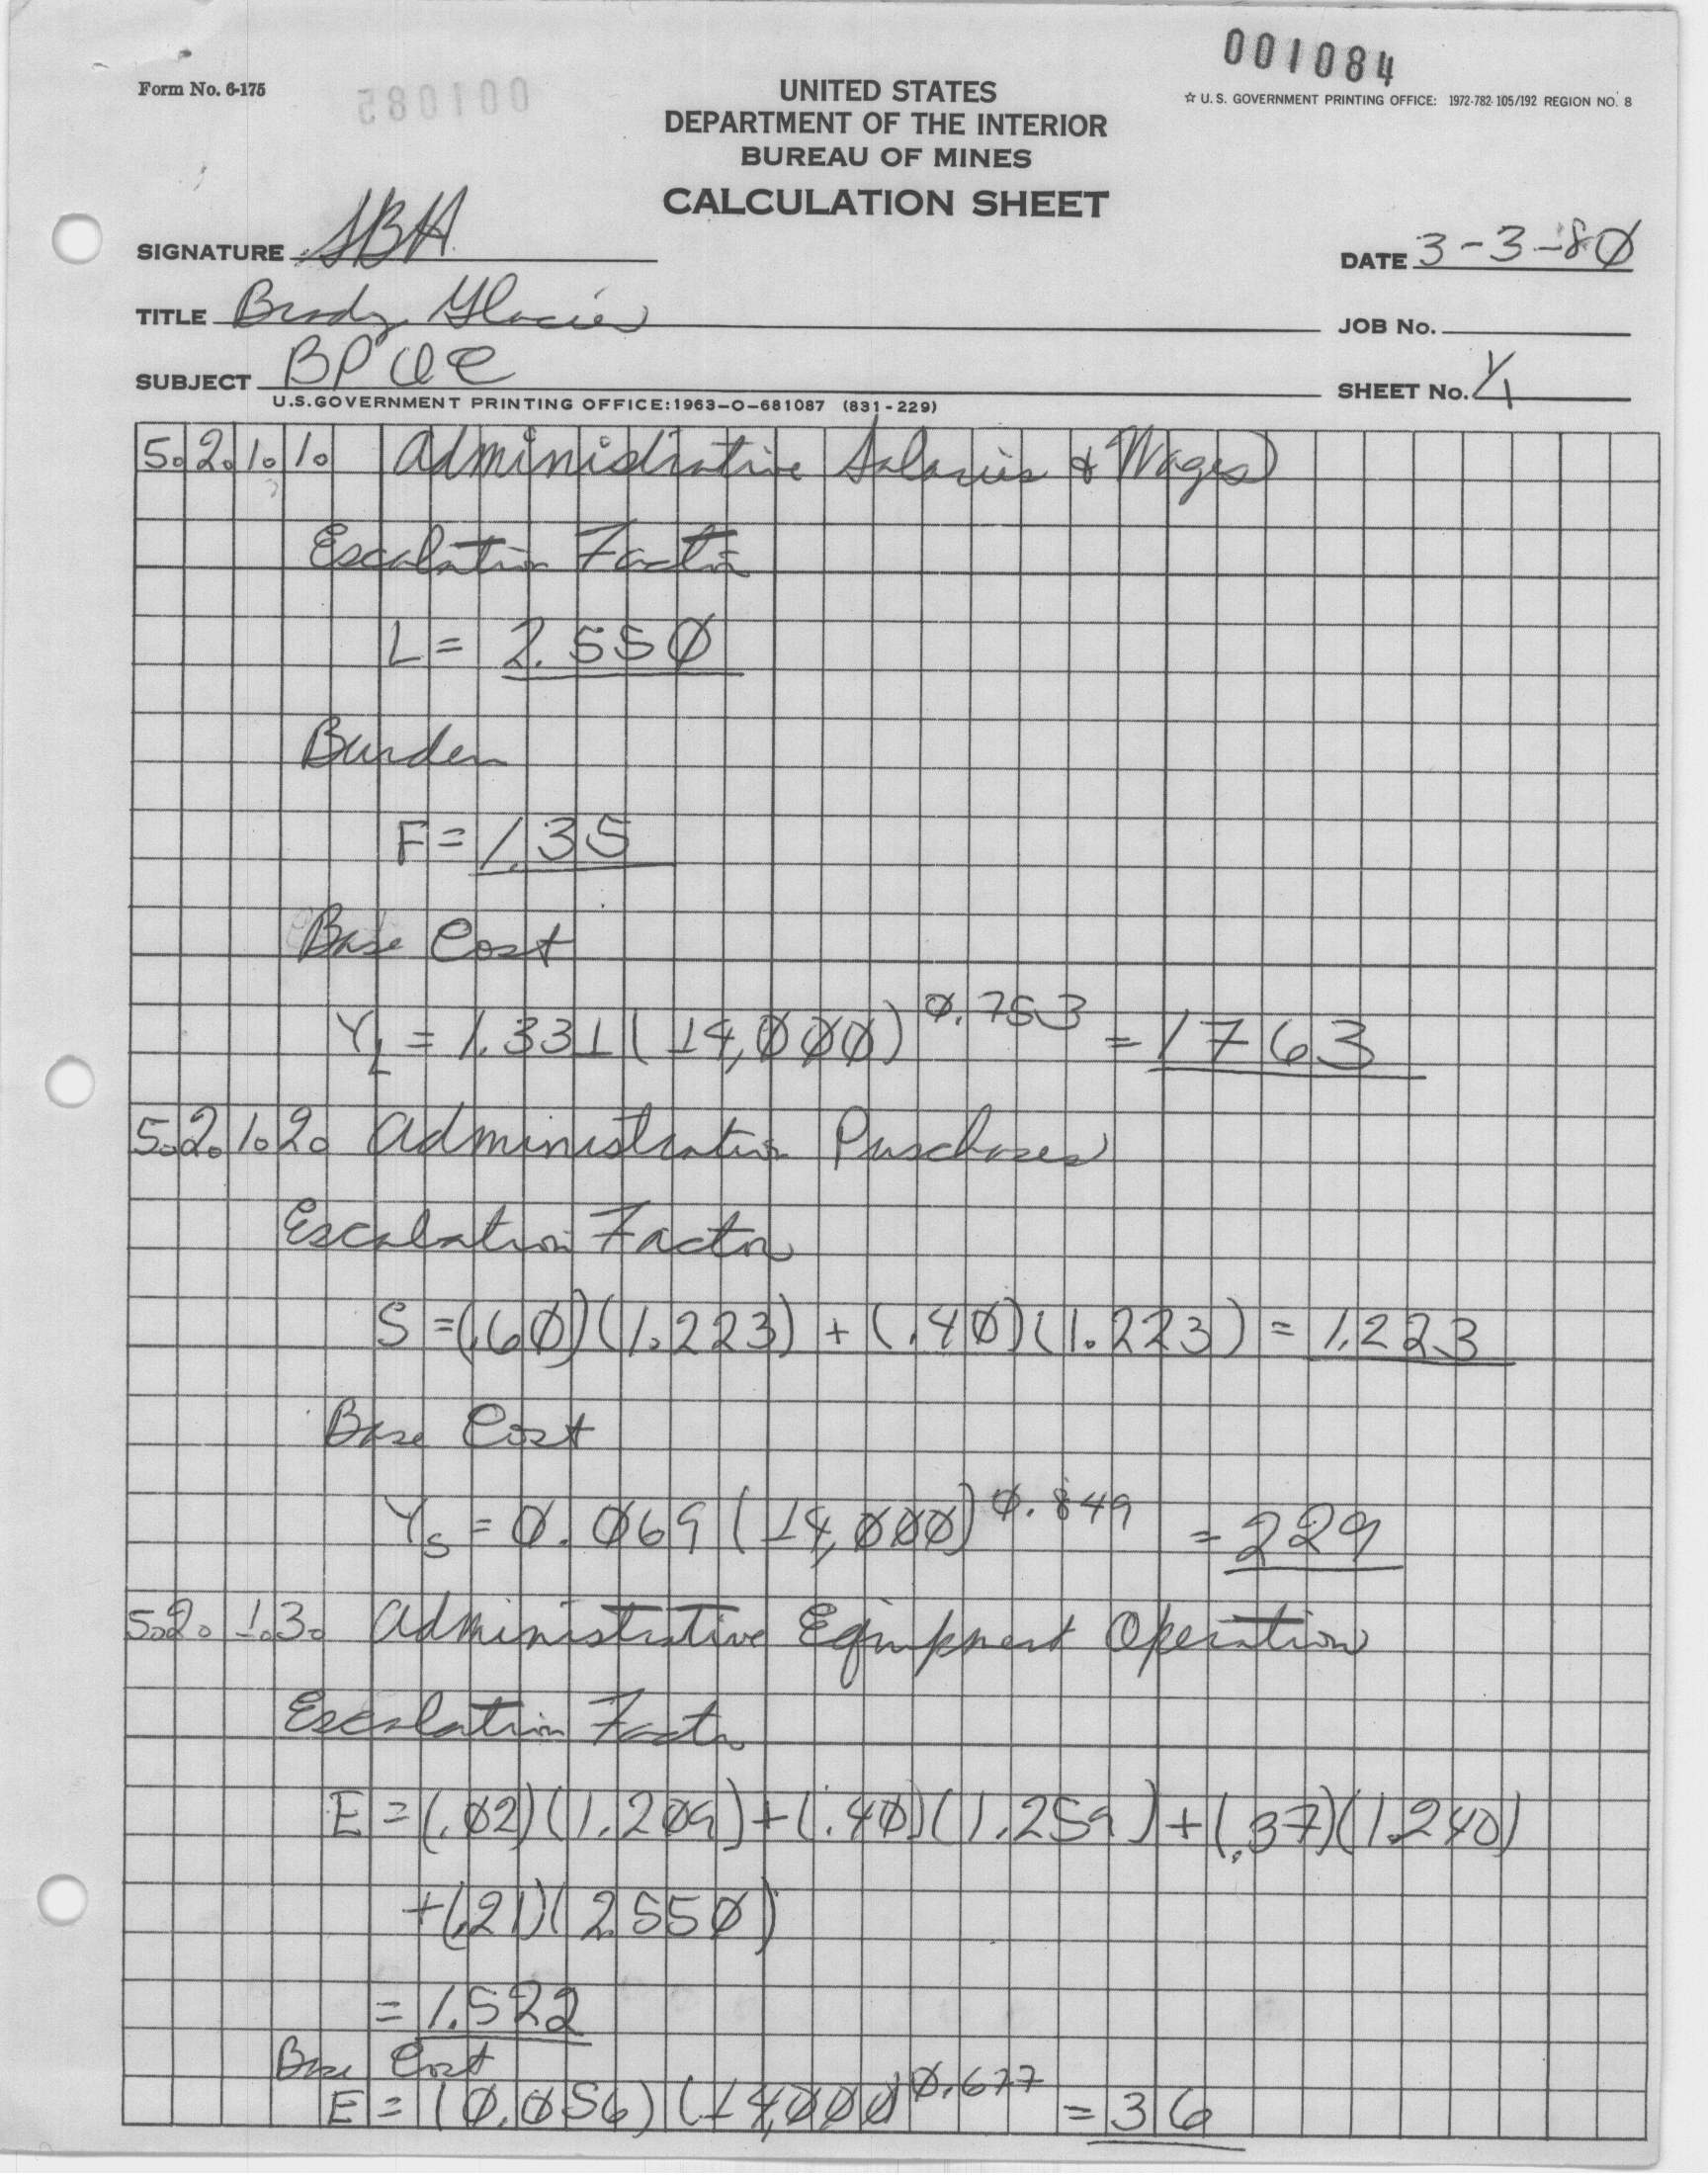 001084
Form No. 6-175
001085
UNITED STATES
☆ U.S. GOVERNMENT PRINTING OFFICE: 1972-782-105/192 REGION NO. 8
DEPARTMENT OF THE INTERIOR
BUREAU OF MINES
CALCULATION SHEET
SIGNATURE SBH
DATE 3-3-80
TITLE Brady Glacier
JOB No.
SUBJECT BPOC
SHEET No. 1/1
U.S.GOVERNMENT PRINTING OFFICE:1963-O-681087 (831-229)
5.2.1.1. Administrative Salaries & Wages
Escalation Factor
L = 2.550
Burden
F = 1.35
Base Cost
Y_L = 1.331 (14,000)^0.753 = 1763
5.2.1.2. Administrative Purchases
Escalation Factor
S = (.60)(1.223) + (.40)(1.223) = 1.223
Base Cost
Y_S = 0.069 (14,000)^0.849 = 229
5.2.1.3. Administrative Equipment Operation
Escalation Factor
E = (.02)(1.209) + (.40)(1.259) + (.37)(1.240)
+ (.21)(2.550)
= 1.522
Base Cost
E = (0.056)(14,000)^0.677 = 36